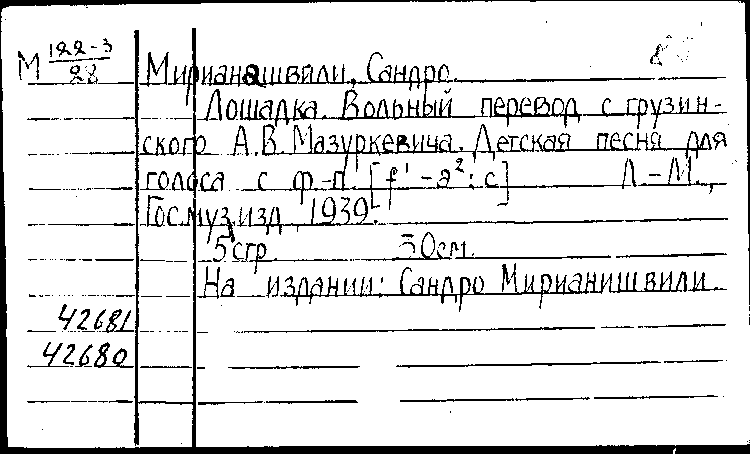 М 122-3/28 Мирианашвили, Сандро.
Лошадка. Вольный перевод с грузин-
ского А.В. Мазуркевича. Детская песня для
голоса с ф.-п. [f¹ - a²: c] Л.-М.,
Госмузизд, 1939.
5 стр. 30 см.
На издании: Сандро Мирианишвили.
42681
42680